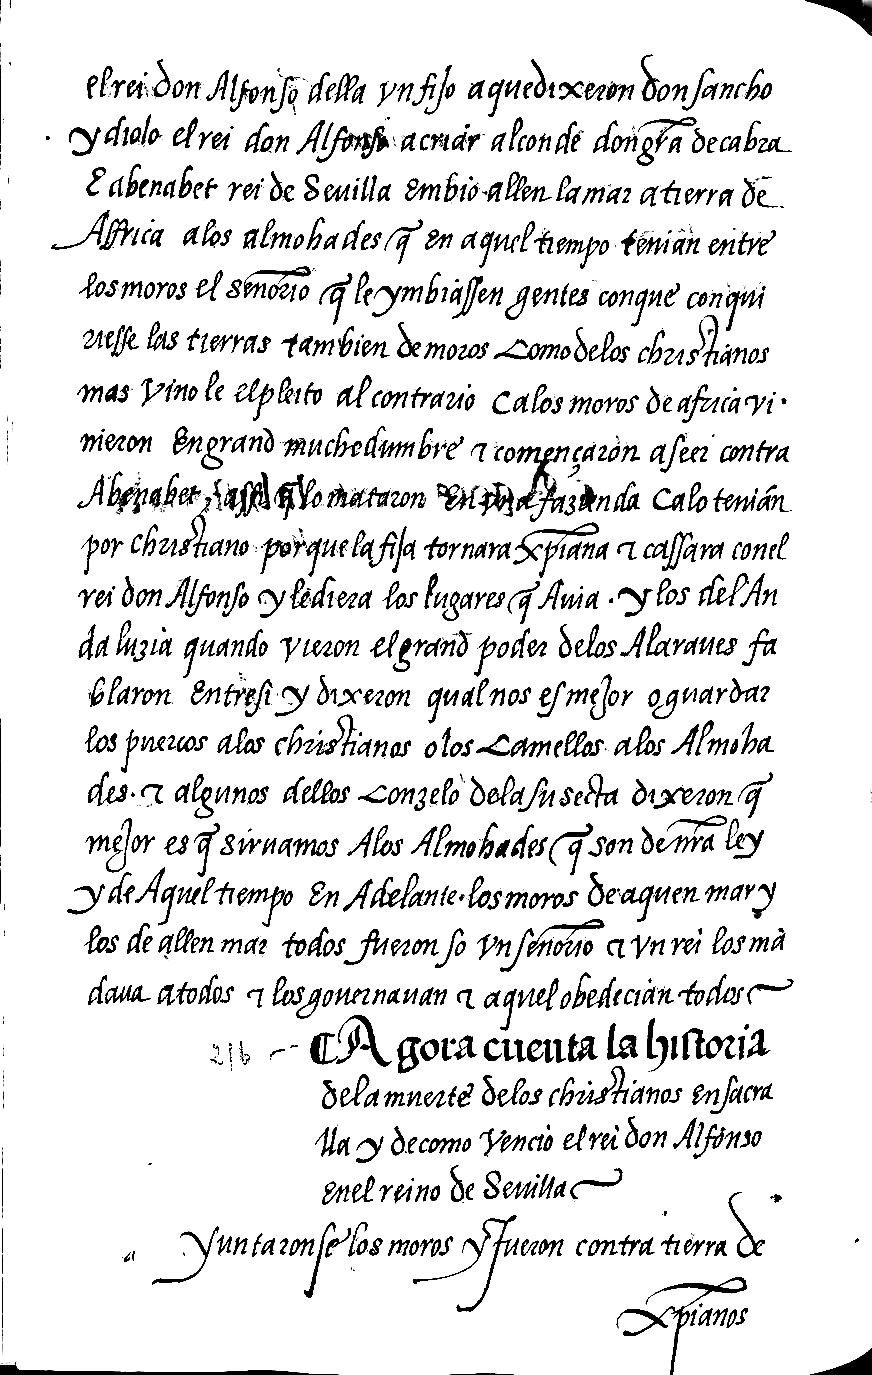 el rei don Alfonso della vn fijo aquedixeron don sancho
y diolo el rei don Alfonso a criar al conde don gra de cabra
E abenabet rei de Sevilla Embio allen la mar a tierra de
Affrica a los almohades q̃ En aquel tiempo tenian entre
los moros el señorio q̃ le ymbiassen gentes conque conqui
riesse las tierras tambien de moros Como de los christianos
mas vino le El pleito al contrario Ca los moros de africa vi
nieron En grand muchedumbre ⁊ començaron a seer contra
Abenabet, assi q̃ lo mataron En vna fazienda Ca lo tenian
por christiano porque la fija tornara xp̃iana ⁊ cassara con el
rei don Alfonso y le diera los lugares q̃ Auia . y los del An
daluzia quando vieron el grand poder de los Alaraues fa
blaron Entre si y dixeron qual nos es mejor o guardar
los puercos a los christianos o los Camellos a los Almoha
des . ⁊ algunos dellos Con zelo de la su secta dixeron q̃
mejor es q̃ siruamos A los Almohades q̃ son de nr̃a ley
y de Aquel tiempo En Adelante . los moros de aquen mar y
los de allen mar todos fueron so vn señorio ⁊ vn rei los mā
daua a todos ⁊ los gouernauan ⁊ a aquel obedecian todos
216 ¶ Agora cuenta la historia
de la muerte de los christianos en sacra
lla y de como Vencio el rei don Alfonso
En el reino de Seuilla
Yuntaronse los moros y fueron contra tierra de
xp̃ianos